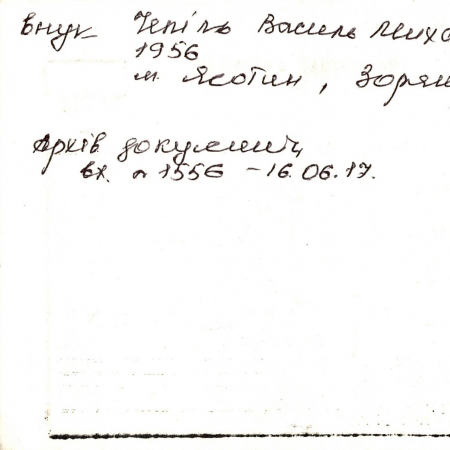 внук Чепіль Василь Михо
1956
м Яготин, Зорян
Архів документ
вх. n 1556 - 16.06.17.